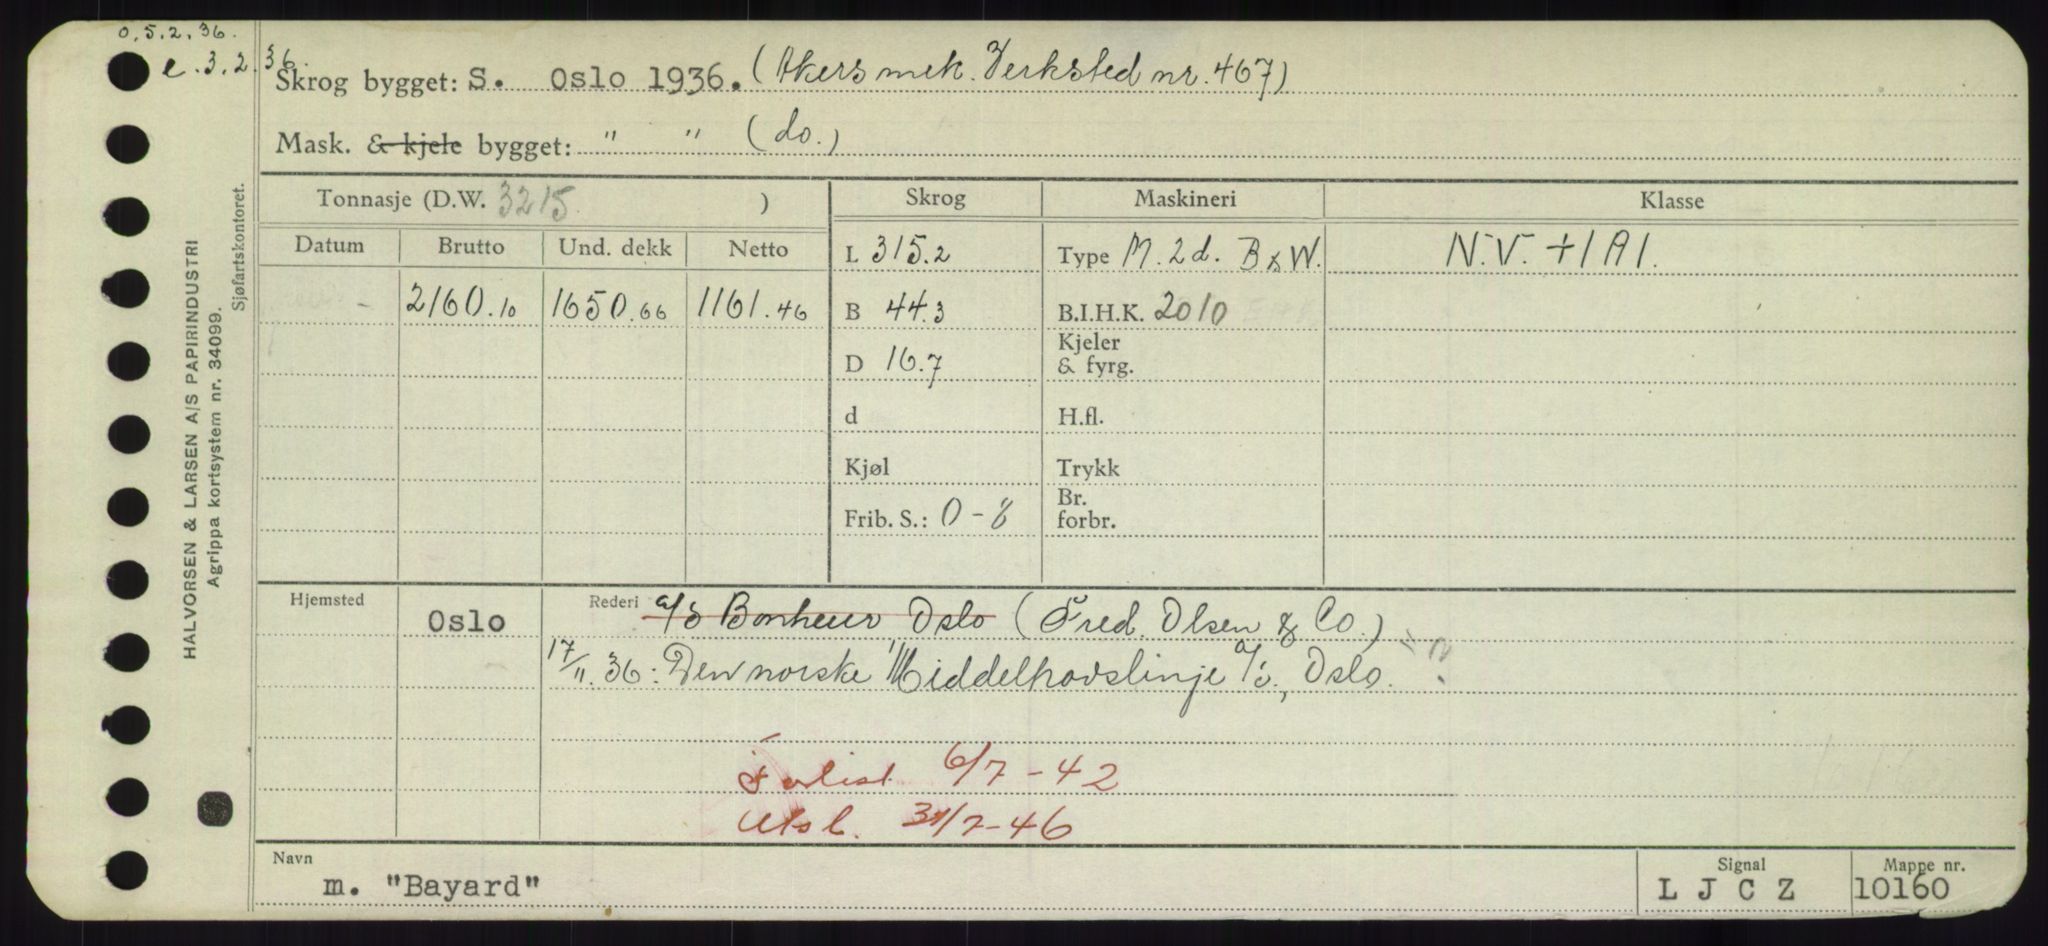 o. 5.2.36.
e. 3.2.36.
Skrog bygget: S. Oslo 1936. (Akers mek. Verksted nr. 467)
Mask. & kjele bygget: " " (do.)
Tonnasje (D.W. 3215 )
Skrog
Maskineri
Klasse
Datum Brutto Und. dekk Netto
L 315.2
Type M. 2 d. B & W.
N.V. +1A1.
- 2160.10 1650.66 1161.46
B 44.3
B.I.H.K. 2010
D 16.7
Kjeler
& fyrg.
d
H.fl.
Kjøl
Trykk
Frib. S.: 0-8
Br.
forbr.
Hjemsted Oslo
Rederi a/s Bonheur Oslo (Fred. Olsen & Co.)
17/11.36: Den norske Middelhavslinje a/s, Oslo.
Forlist 6/7-42
Utsl. 31/7-46
Navn
m. "Bayard"
Signal
L J C Z
Mappe nr.
10160
HALVORSEN & LARSEN A/S PAPIRINDUSTRI
Agrippa kortsystem nr. 34099.
Sjøfartskontoret.